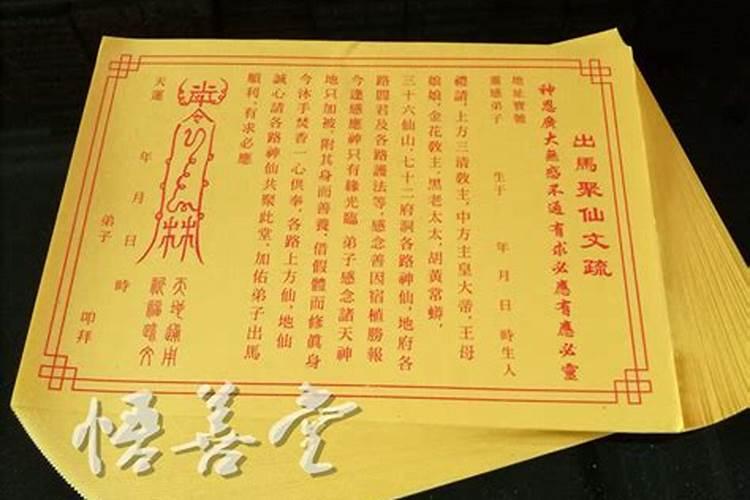 出馬聚仙文疏
神恩廣大無惑不通有求必應有應必靈
地址寶號
靈感弟子 生于 年 月 日 時生人
禮請，上方三清教主，中方主皇大帝，王母
娘娘，金花教主，黑老太太，胡黃常蟒，
三十六仙山，七十二府洞各路神仙，地府各
路閻君及各路護法等，感念善因宿植勝報
今逢感應神只有緣光臨 弟子感念諸天神
地只加被，附其身而善養，借假體而修真身
今沐手焚香一心供奉，各路上方仙，地仙
誠心請各路神仙共聚此堂，加佑弟子出馬
順利，有求必應
天運 年 月 日 時
弟子 叩拜
悟善堂